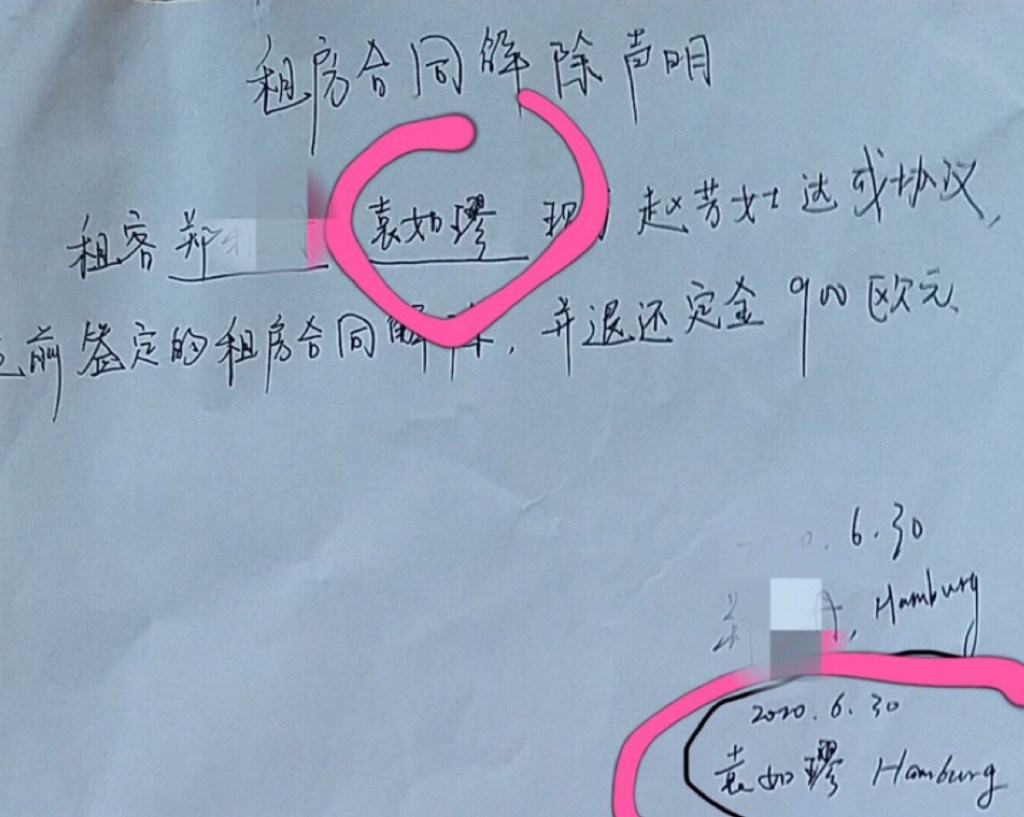 租房合同解除声明
租客 郑 袁如璆 现 赵芳女士达成协议,
前签定的租房合同解除, 并退还定金900欧元
6.30
郑 , Hamburg
2020.6.30
袁如璆 Hamburg